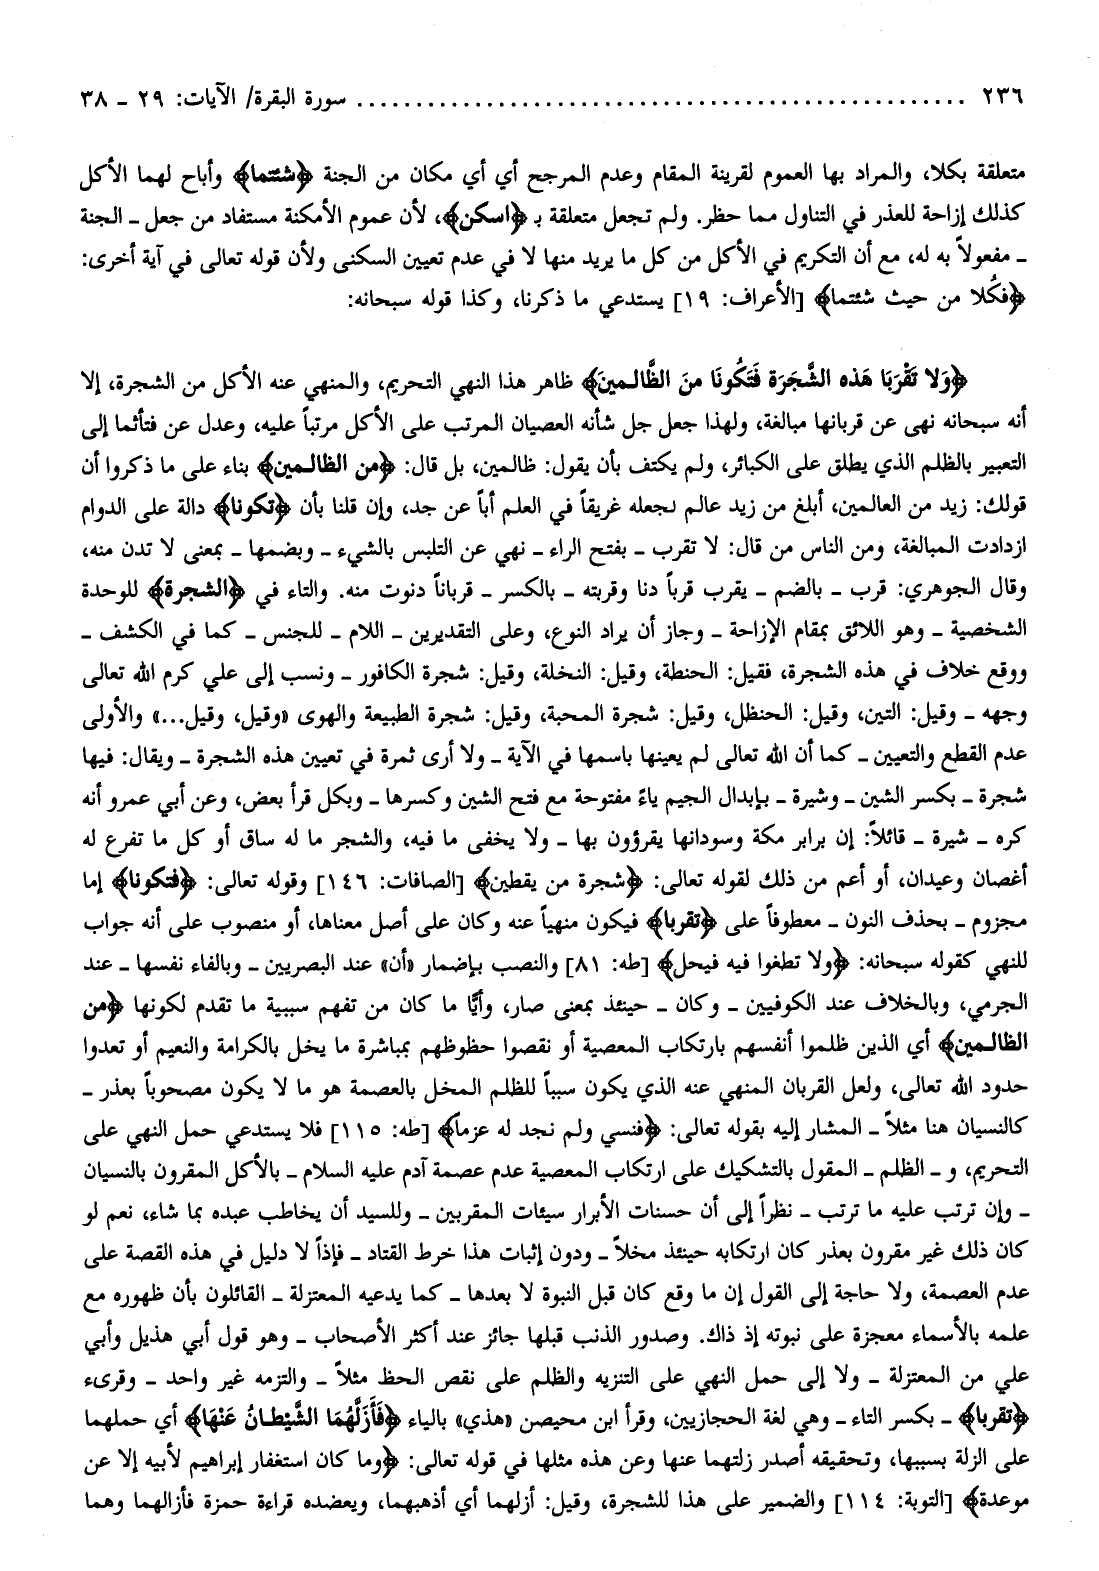 ٢٣٦ ........................................................ سورة البقرة/ الآيات: ٢٩ ـ ٣٨
متعلقة بكلا، والمراد بها العموم لقرينة المقام وعدم المرجح أي أي مكان من الجنة ﴿شئتما﴾ وأباح لهما الأكل
كذلك إزاحة للعذر في التناول مما حظر. ولم تجعل متعلقة بـ ﴿اسكن﴾، لأن عموم الأمكنة مستفاد من جعل ـ الجنة
ـ مفعولاً به له، مع أن التكريم في الأكل من كل ما يريد منها لا في عدم تعيين السكنى ولأن قوله تعالى في آية أخرى:
﴿فكُلا من حيث شئتما﴾ [الأعراف: ١٩] يستدعي ما ذكرنا، وكذا قوله سبحانه:
﴿وَلا تَقْرَبَا هَذه الشَّجَرَة فَتَكُونَا منَ الظَّالـمينَ﴾ ظاهر هذا النهي التحريم، والمنهي عنه الأكل من الشجرة، إلا
أنه سبحانه نهى عن قربانها مبالغة، ولهذا جعل جل شأنه العصيان المرتب على الأكل مرتباً عليه، وعدل عن فتأثما إلى
التعبير بالظلم الذي يطلق على الكبائر، ولم يكتف بأن يقول: ظالمين، بل قال: ﴿من الظالـمين﴾ بناء على ما ذكروا أن
قولك: زيد من العالمين، أبلغ من زيد عالم لجعله غريقاً في العلم أباً عن جد، وإن قلنا بأن ﴿تكونا﴾ دالة على الدوام
ازدادت المبالغة، ومن الناس من قال: لا تقرب ـ بفتح الراء ـ نهي عن التلبس بالشيء ـ وبضمها ـ بمعنى لا تدن منه،
وقال الجوهري: قرب ـ بالضم ـ يقرب قرباً دنا وقربته ـ بالكسر ـ قرباناً دنوت منه. والتاء في ﴿الشجرة﴾ للوحدة
الشخصية ـ وهو اللائق بمقام الإزاحة ـ وجاز أن يراد النوع، وعلى التقديرين ـ اللام ـ للجنس ـ كما في الكشف ـ
ووقع خلاف في هذه الشجرة، فقيل: الحنطة، وقيل: النخلة، وقيل: شجرة الكافور ـ ونسب إلى علي كرم الله تعالى
وجهه ـ وقيل: التين، وقيل: الحنظل، وقيل: شجرة المحبة، وقيل: شجرة الطبيعة والهوى «وقيل، وقيل...» والأولى
عدم القطع والتعيين ـ كما أن الله تعالى لم يعينها باسمها في الآية ـ ولا أرى ثمرة في تعيين هذه الشجرة ـ ويقال: فيها
شجرة ـ بكسر الشين ـ وشيرة ـ بإبدال الجيم ياءً مفتوحة مع فتح الشين وكسرها ـ وبكل قرأ بعض، وعن أبي عمرو أنه
كره ـ شيرة ـ قائلاً: إن برابر مكة وسودانها يقرؤون بها ـ ولا يخفى ما فيه، والشجر ما له ساق أو كل ما تفرع له
أغصان وعيدان، أو أعم من ذلك لقوله تعالى: ﴿شجرة من يقطين﴾ [الصافات: ١٤٦] وقوله تعالى: ﴿فتكونا﴾ إما
مجزوم ـ بحذف النون ـ معطوفاً على ﴿تقربا﴾ فيكون منهياً عنه وكان على أصل معناها، أو منصوب على أنه جواب
للنهي كقوله سبحانه: ﴿ولا تطغوا فيه فيحل﴾ [طه: ٨١] والنصب بإضمار «أن» عند البصريين ـ وبالفاء نفسها ـ عند
الجرمي، وبالخلاف عند الكوفيين ـ وكان ـ حينئذ بمعنى صار، وأيًّا ما كان من تفهم سببية ما تقدم لكونها ﴿من
الظالـمين﴾ أي الذين ظلموا أنفسهم بارتكاب المعصية أو نقصوا حظوظهم بمباشرة ما يخل بالكرامة والنعيم أو تعدوا
حدود الله تعالى، ولعل القربان المنهي عنه الذي يكون سبباً للظلم المخل بالعصمة هو ما لا يكون مصحوباً بعذر ـ
كالنسيان هنا مثلاً ـ المشار إليه بقوله تعالى: ﴿فنسي ولم نجد له عزماً﴾ [طه: ١١٥] فلا يستدعي حمل النهي على
التحريم، و ـ الظلم ـ المقول بالتشكيك على ارتكاب المعصية عدم عصمة آدم عليه السلام ـ بالأكل المقرون بالنسيان
ـ وإن ترتب عليه ما ترتب ـ نظراً إلى أن حسنات الأبرار سيئات المقربين ـ وللسيد أن يخاطب عبده بما شاء، نعم لو
كان ذلك غير مقرون بعذر كان ارتكابه حينئذ مخلاً ـ ودون إثبات هذا خرط القتاد ـ فإذاً لا دليل في هذه القصة على
عدم العصمة، ولا حاجة إلى القول إن ما وقع كان قبل النبوة لا بعدها ـ كما يدعيه المعتزلة ـ القائلون بأن ظهوره مع
علمه بالأسماء معجزة على نبوته إذ ذاك. وصدور الذنب قبلها جائز عند أكثر الأصحاب ـ وهو قول أبي هذيل وأبي
علي من المعتزلة ـ ولا إلى حمل النهي على التنزيه والظلم على نقص الحظ مثلاً ـ والتزمه غير واحد ـ وقرىء
﴿تقربا﴾ ـ بكسر التاء ـ وهي لغة الحجازيين، وقرأ ابن محيصن «هذي» بالياء ﴿فَأَزَلَّهُمَا الشَّيْطـانُ عَنْهَا﴾ أي حملهما
على الزلة بسببها، وتحقيقه أصدر زلتهما عنها وعن هذه مثلها في قوله تعالى: ﴿وما كان استغفار إبراهيم لأبيه إلا عن
موعدة﴾ [التوبة: ١١٤] والضمير على هذا للشجرة، وقيل: أزلهما أي أذهبهما، ويعضده قراءة حمزة فأزالهما وهما